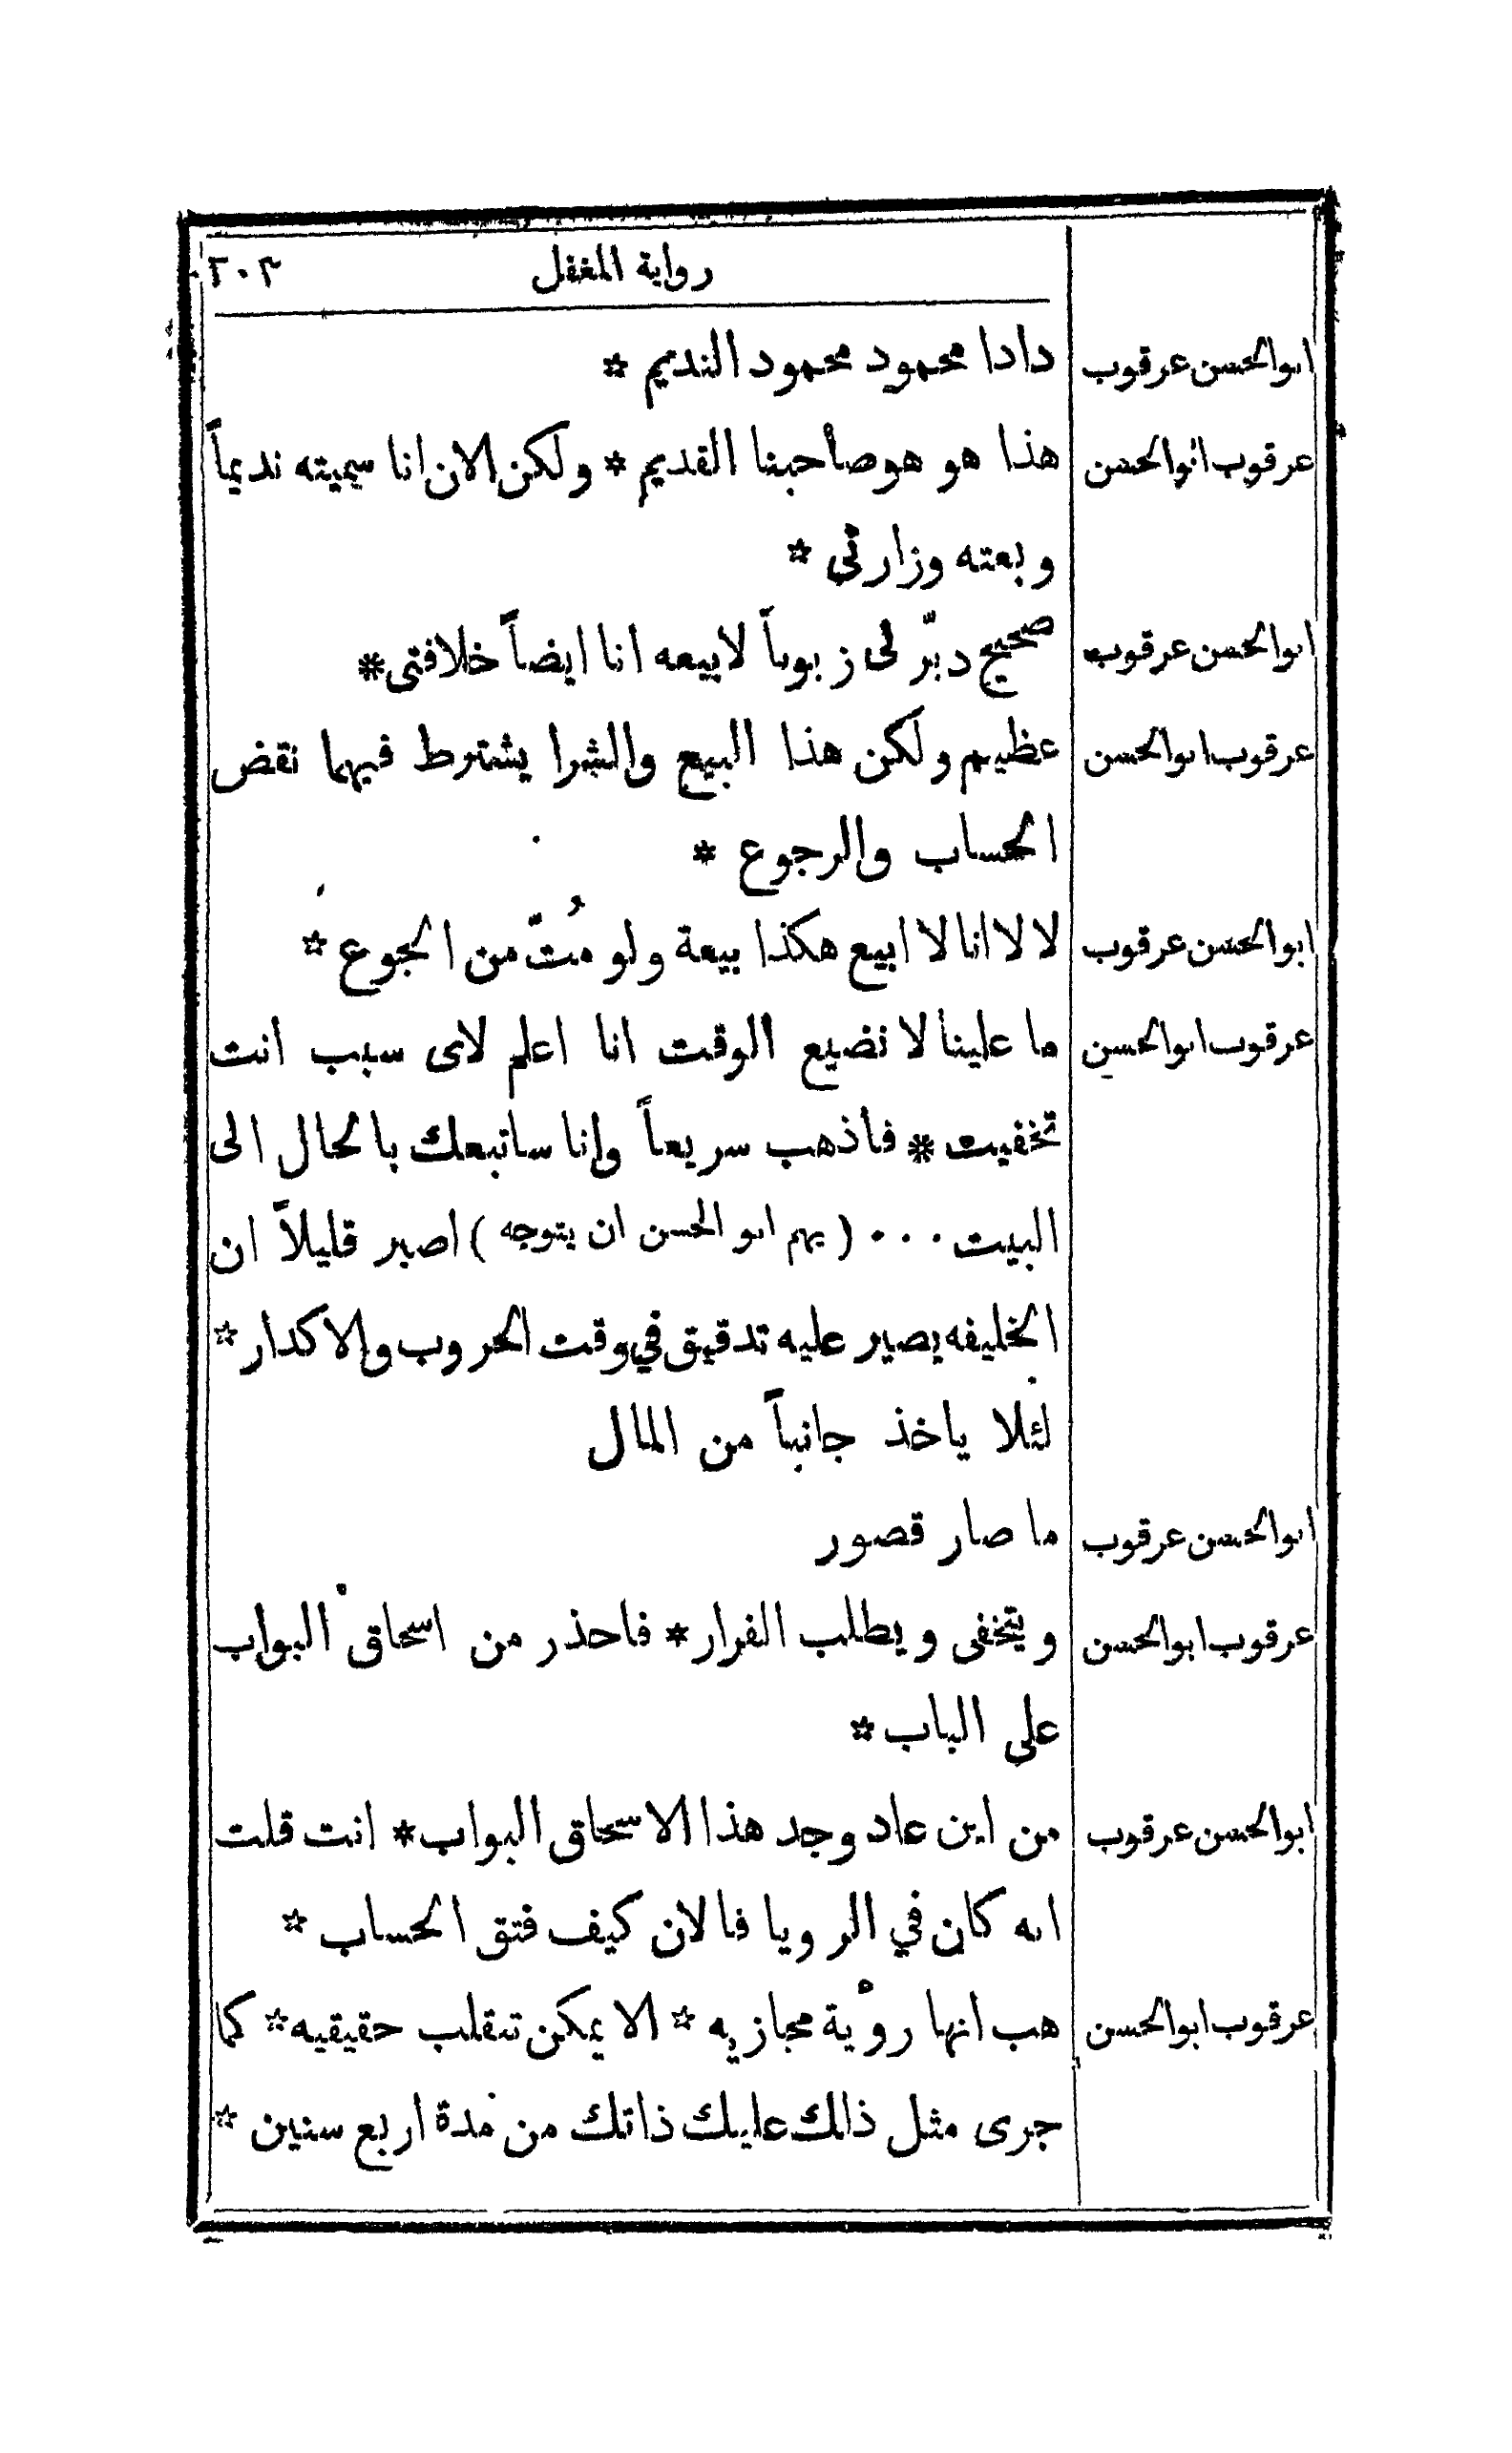 رواية المغفل ٢٠٣
ابوالحسن عرقوب دادا محمود محمود النديم *
عرقوب ابوالحسن هذا هو هو صاحبنا القديم * ولكن الان انا سميته نديماً
وبعته وزارتي *
ابوالحسن عرقوب صحيح دبّر لى زبوناً لابيعه انا ايضاً خلافتى *
عرقوب ابوالحسن عظيم ولكن هذا البيع والشرا يشترط فيهما نقض
الحساب والرجوع *
ابوالحسن عرقوب لا لا انا لا ابيع هكذا بيعة ولو مُتّ من الجوع *
عرقوب ابوالحسن ما علينا لا نضيع الوقت انا اعلم لاى سبب انت
تخفيت * فاذهب سريعاً وانا ساتبعك بالحال الى
البيت ... ( يهم ابو الحسن ان يتوجه ) اصبر قليلاً ان
الخليفه يصير عليه تدقيق في وقت الحروب والاكدار *
لئلا ياخذ جانباً من المال
ابوالحسن عرقوب ما صار قصور
عرقوب ابوالحسن ويتخفى ويطلب الفرار * فاحذر من اسحاق البواب
على الباب *
ابوالحسن عرقوب من اين عاد وجد هذا الاسحاق البواب * انت قلت
انه كان في الرويا فالان كيف فتق الحساب *
عرقوب ابوالحسن هب انها رؤية مجازيه * الا يمكن تنقلب حقيقيه * كما
جرى مثل ذالك عليك ذاتك من مدة اربع سنين *